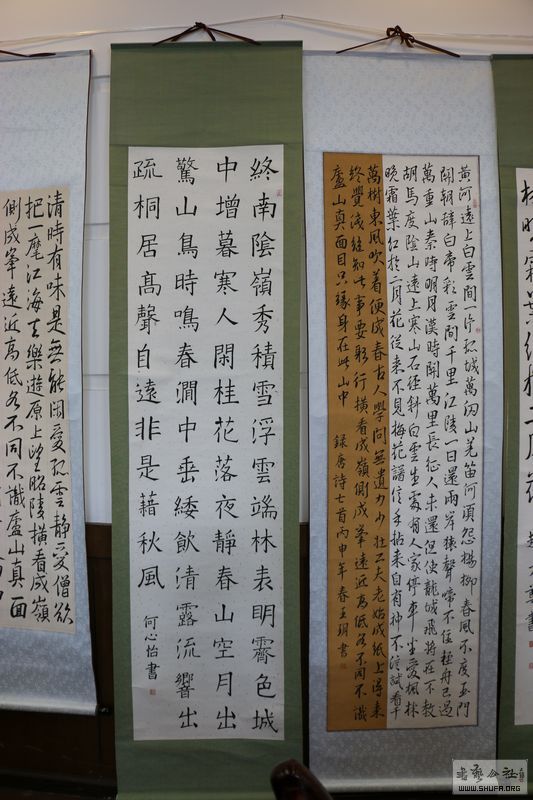 林晚霜葉紅於二月花
書
黃河遠上白雲間一片孤城萬仞山羌笛何須怨楊柳春風不度玉門
關朝辭白帝彩雲間千里江陵一日還兩岸猿聲啼不住輕舟已過
萬重山秦時明月漢時關萬里長征人未還但使龍城飛將在不教
胡馬度陰山遠上寒山石徑斜白雲生處有人家停車坐愛楓林
晚霜葉紅於二月花從來不見梅花譜信手拈來自有神不信試看千
萬樹東風吹着便成春古人學問無遺力少壯工夫老始成紙上得來
終覺淺絕知此事要躬行橫看成嶺側成峯遠近高低各不同不識
廬山真面目只緣身在此山中 録唐詩七首丙申年春王玥書
終南陰嶺秀積雪浮雲端林表明霽色城
中增暮寒人閑桂花落夜靜春山空月出
驚山鳥時鳴春澗中垂緌飲清露流響出
疏桐居髙聲自遠非是藉秋風 何心怡書
清時有味是無能閑愛孤雲靜愛僧欲
把一麾江海去樂遊原上望昭陵橫看成嶺
側成峯遠近高低各不同不識廬山真面
書藝公社
WWW.SHUFA.ORG